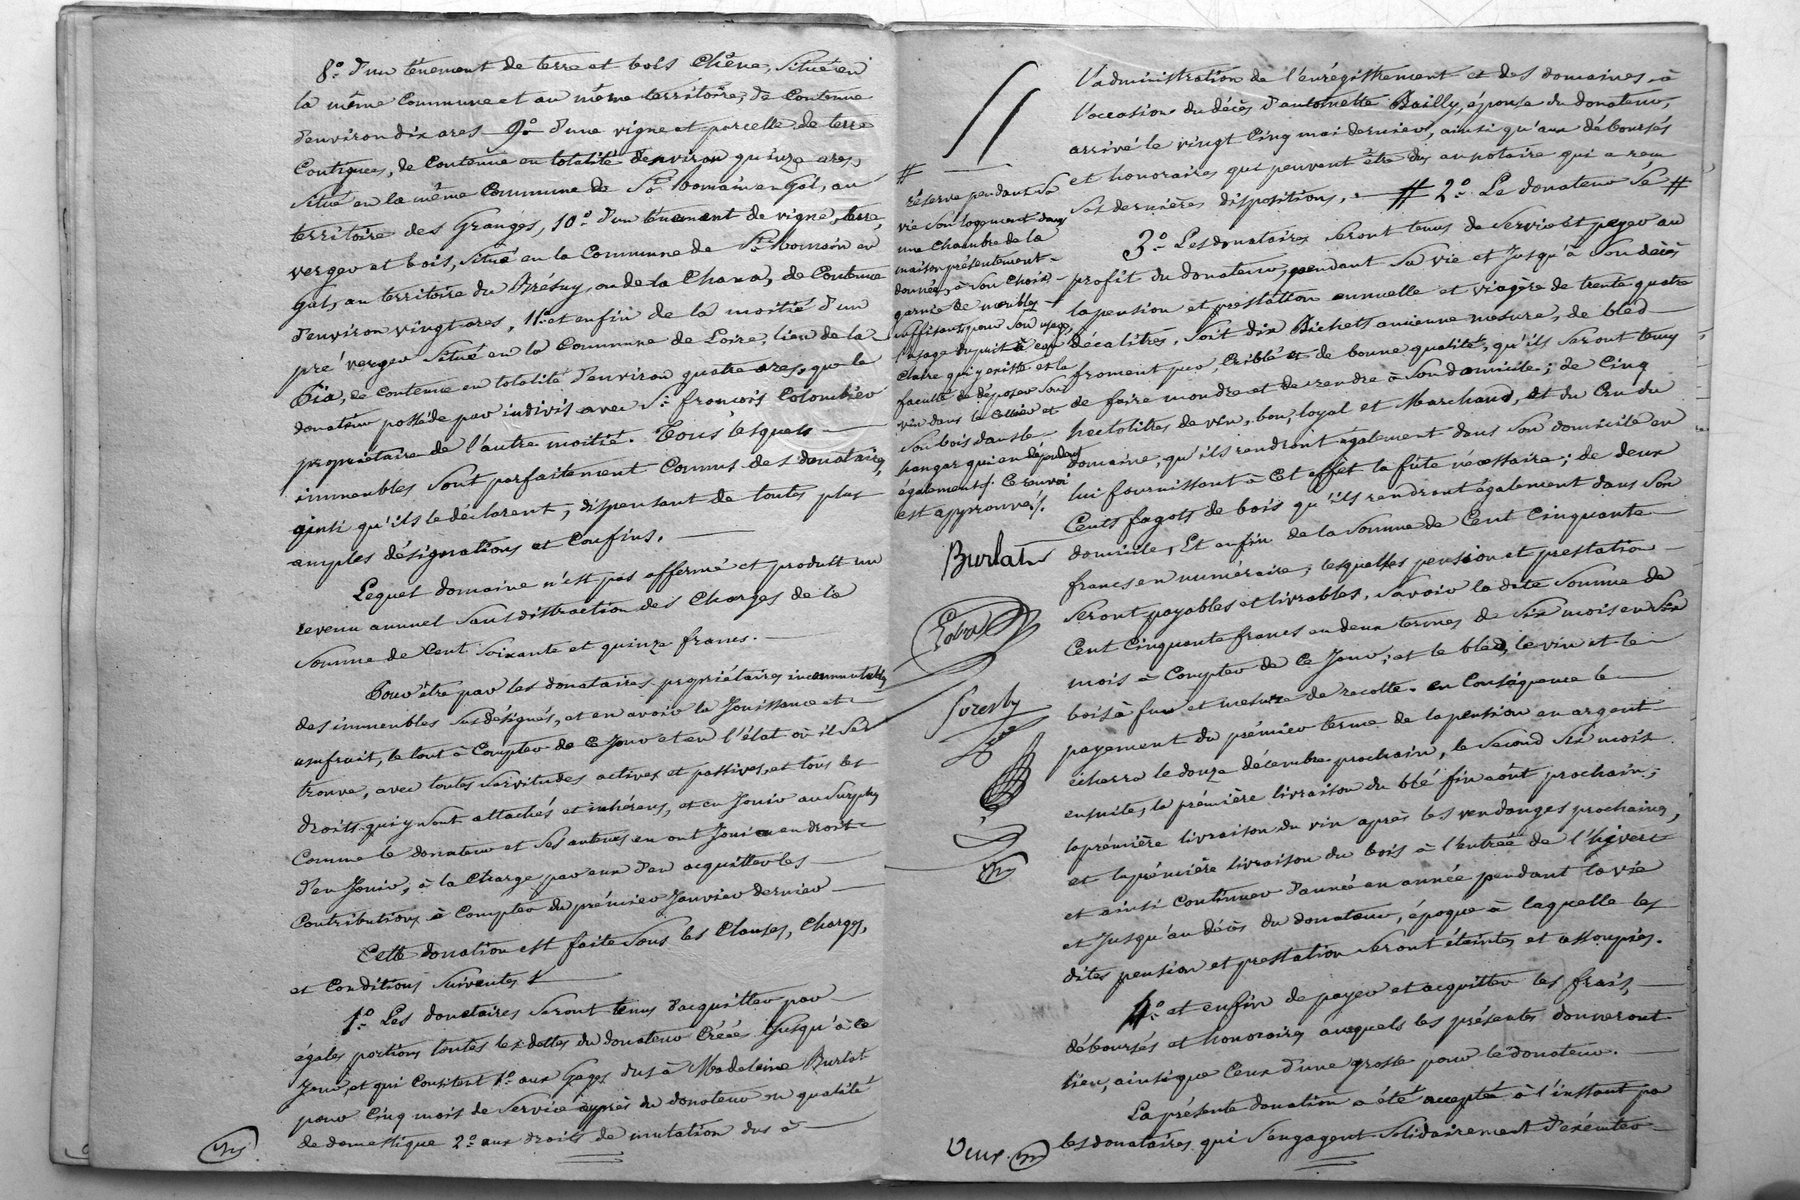 8.º d'un tènement de terre et bois chêne, situé en
la même commune et au même territoire, de contenue
d'environ dix ares 9.º d'une vigne et parcelle de terre
contigues, de contenue en totalité d'environ quinze ares,
situé en la même commune de S.t Romain en Gal, au
territoire des Granges, 10.º d'un tènement de vigne, terre,
verger et bois, situé en la commune de S.t Romain en
Gal, au territoire du Brésuy, ou de la Chana, de contenue
d'environ vingt ares, 11.º et enfin de la moitié d'un
pré verger situé en la commune de Loire, lieu de la
Pia, de contenue en totalité d'environ quatre ares, que le
donateur possède par indivis avec S.r françois Colombier
propriétaire de l'autre moitié. Tous lesquels
immeubles sont parfaitement connus des donataires,
ainsi qu'ils le déclarent, dispensant de toutes plus
amples désignations et confins.
Lequel domaine n'est pas affermé et produit un
revenu annuel sans distraction des charges de la
somme de cent soixante et quinze francs.
Pour être par les donataires propriétaires incommutables
des immeubles sus désignés, et en avoir la jouissance et
usufruit, le tout à compter de ce jour et en l'état où il se
trouve, avec toutes servitudes actives et passives, et tous les
droits qui y sont attachés et inhérens, et en jouir au surplus
comme le donateur et ses auteurs en ont joui ou eu droit
d'en jouir, à la charge par eux d'en acquitter les
contributions à compter du prémier janvier dernier
Cette donation est faite sous les clauses, charges,
et conditions suivantes
1.º Les donataires seront tenus d'acquitter par
égales portions toutes les dettes du donateur créée jusqu'à ce
jour, et qui consistent 1.º aux gages dus à Madeleine Burlat
pour cinq mois de service auprès du donateur en qualité
de domestique 2.º aux droits de mutation dus à
l'administration de l'enrégistrement et des domaines, à
l'occasion du décès d'antoinette Bailly, épouse du donateur,
arrivé le vingt cinq mai dernier, ainsi qu'aux déboursés
et honoraires qui peuvent être dus au notaire qui a reçu
ses dernières dispositions. # 2.º Le donateur se #
3.º Les donataires seront tenus de servir et payer au
profit du donateur, pendant sa vie et jusqu'à son décès
la pension et prestation annuelle et viagère de trente quatre
décalitres, soit dix Bichets ancienne mesure, de bled
froment pur, criblé et de bonne qualité, qu'ils seront tenus
de faire moudre et de rendre à son domicile; de cinq
hectolitres de vin, bon, loyal et marchand, et du cru du
domaine, qu'ils rendront également dans son domicile en
lui fournissant à cet effet la fûte nécessaire; de deux
cents fagots de bois qu'ils rendront également dans son
domicile, Et enfin de la somme de cent cinquante
francs en numéraire; lesquelles pension et prestation
seront payables et livrables, savoir la dite somme de
cent cinquante francs en deux termes de six mois en six
mois à compter de ce jour; et le bled, le vin et le
bois à fur et mesure de recolte. en conséquence le
payement du prémier terme de la pension en argent
écherra le douze décembre prochain, le second six mois
ensuite, la prémière livraison du blé fin août prochain;
la prémière livraison du vin après les vendanges prochaines,
et la prémière livraison du bois à l'entrée de l'hivert
et ainsi continuer d'année en année pendant la vie
et jusqu'au décès du donateur, époque à laquelle les
dites pension et prestation seront éteintes et assoupies.
4.º et enfin de payer et acquitter les frais,
déboursés et honoraires auxquels les présentes donneront
lieu, ainsi que ceux d'une grosse pour le donateur.
La présente donation a été acceptée à l'instant par
les donataires qui s'engagent solidairement d'exécuter
#
réserve pendant sa
vie son logement dans
une chambre de la
maison présentement
donnée, à son choix
garnie de meubles
suffisants pour son usage,
l'usage du puit à eau
claire qui y existe et la
faculté de déposer son
vin dans le cellier et
son bois dans le
hangar qui en dépendent
également. Ce renvoi
est approuvé.
Burlat